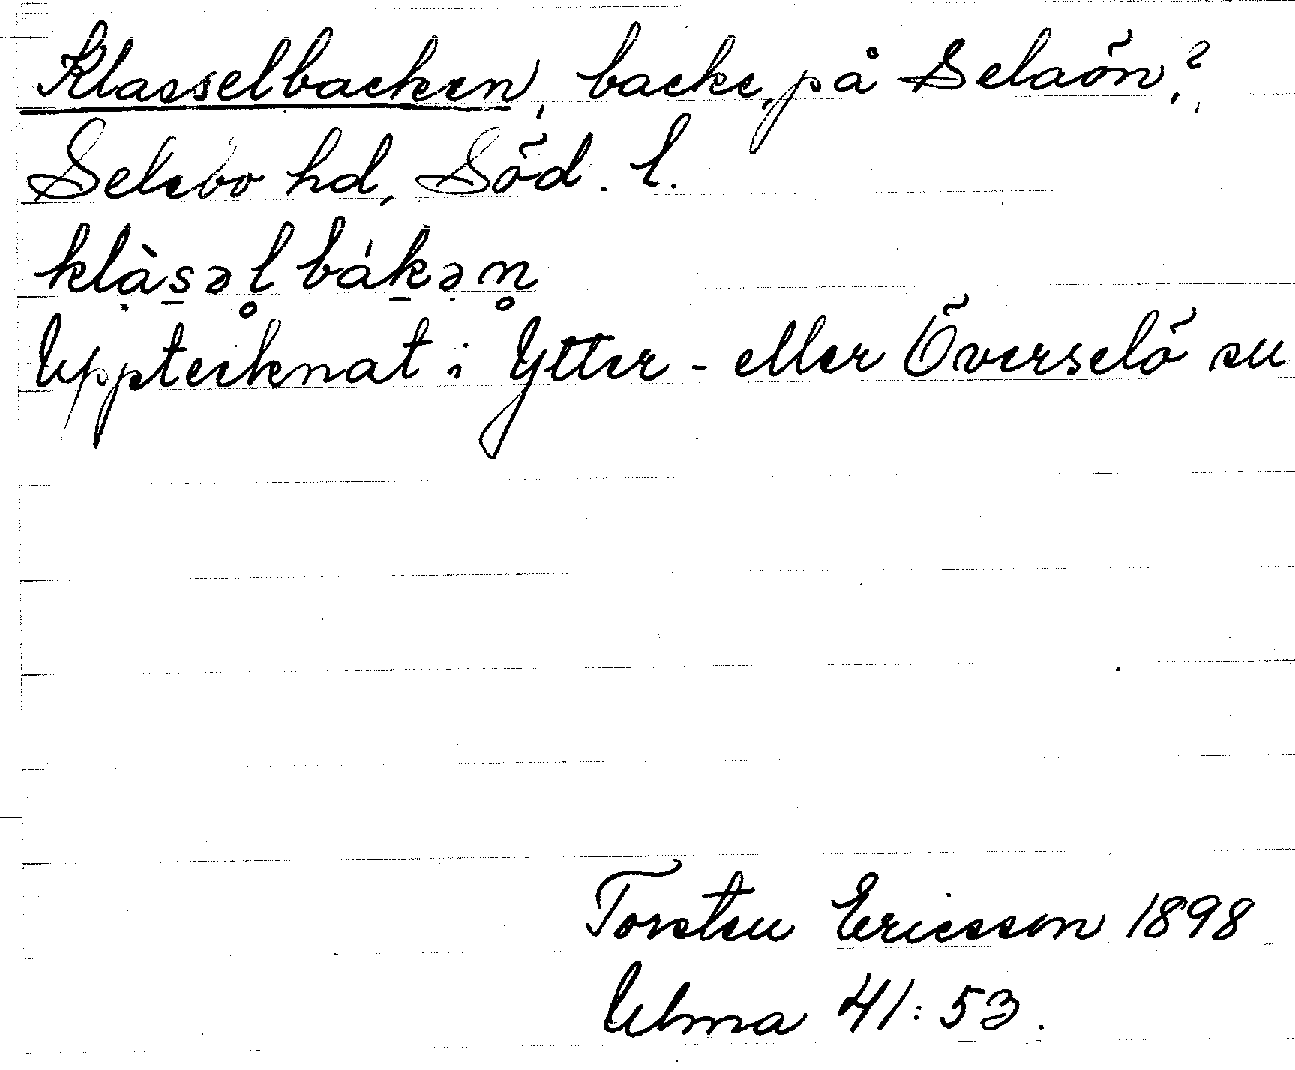 Klasselbacken, backe, på Selaön?,
Selebo hd, Söd. l.
klàs̲əl̥ bák̲ən̥
Upptecknat i Ytter- eller Överselö su
Torsten Ericsson 1898
Ulma 41:53.